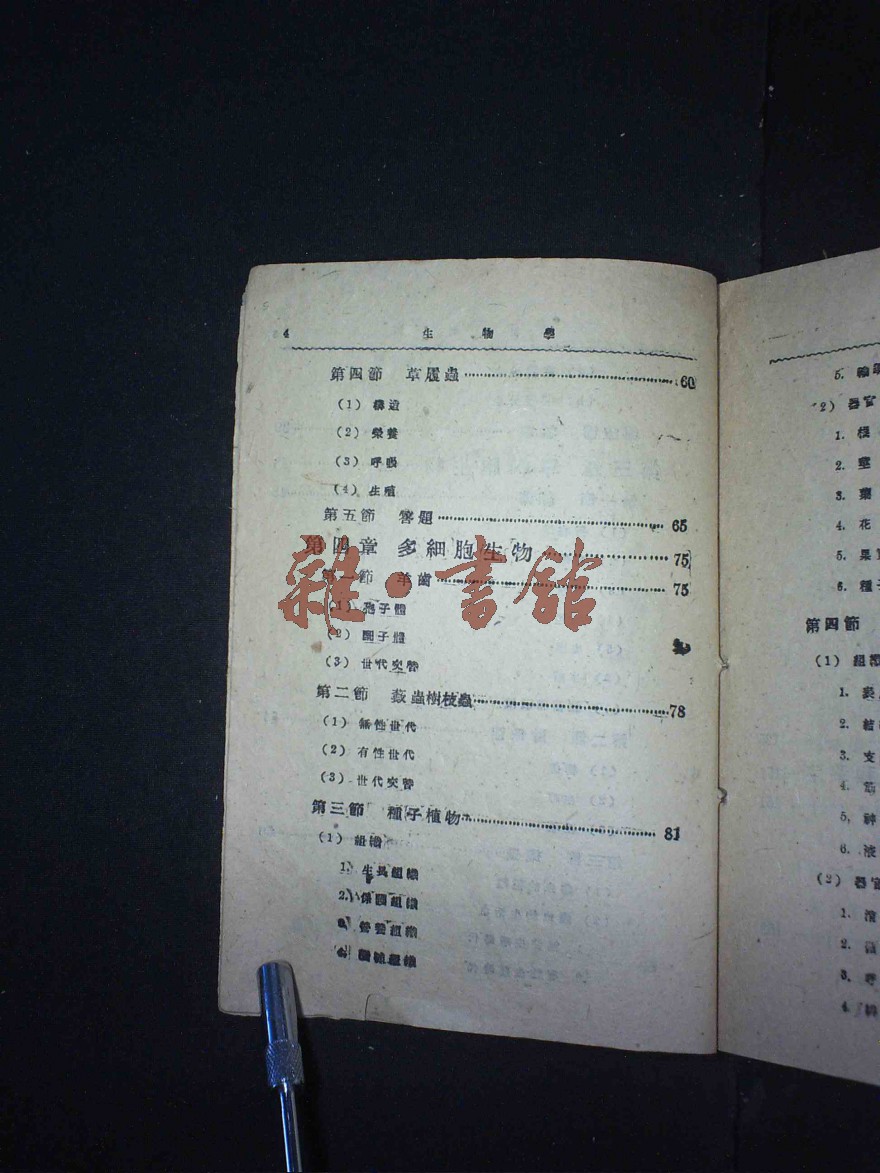 4 生物學
第四節 草履蟲 60
(1) 構造
(2) 榮養
(3) 呼吸
(4) 生殖
第五節 答題 65
第四章 多細胞生物 75
第一節 羊齒 75
(1) 孢子體
(2) 配子體
(3) 世代交替
第二節 薮蟲樹枝蟲 78
(1) 無性世代
(2) 有性世代
(3) 世代交替
第三節 種子植物 81
(1) 組織
1. 生長組織
2. 保護組織
3. 營養組織
4. 組織
雜·書館
5.
(2) 器官
1. 根
2. 莖
3. 葉
4. 花
5. 果實
6. 種子
第四節
(1) 組織
1.
2. 結
3. 支
4. 筋
5. 神
6. 液
(2) 器官
1. 消
2.
3. 呼
4.